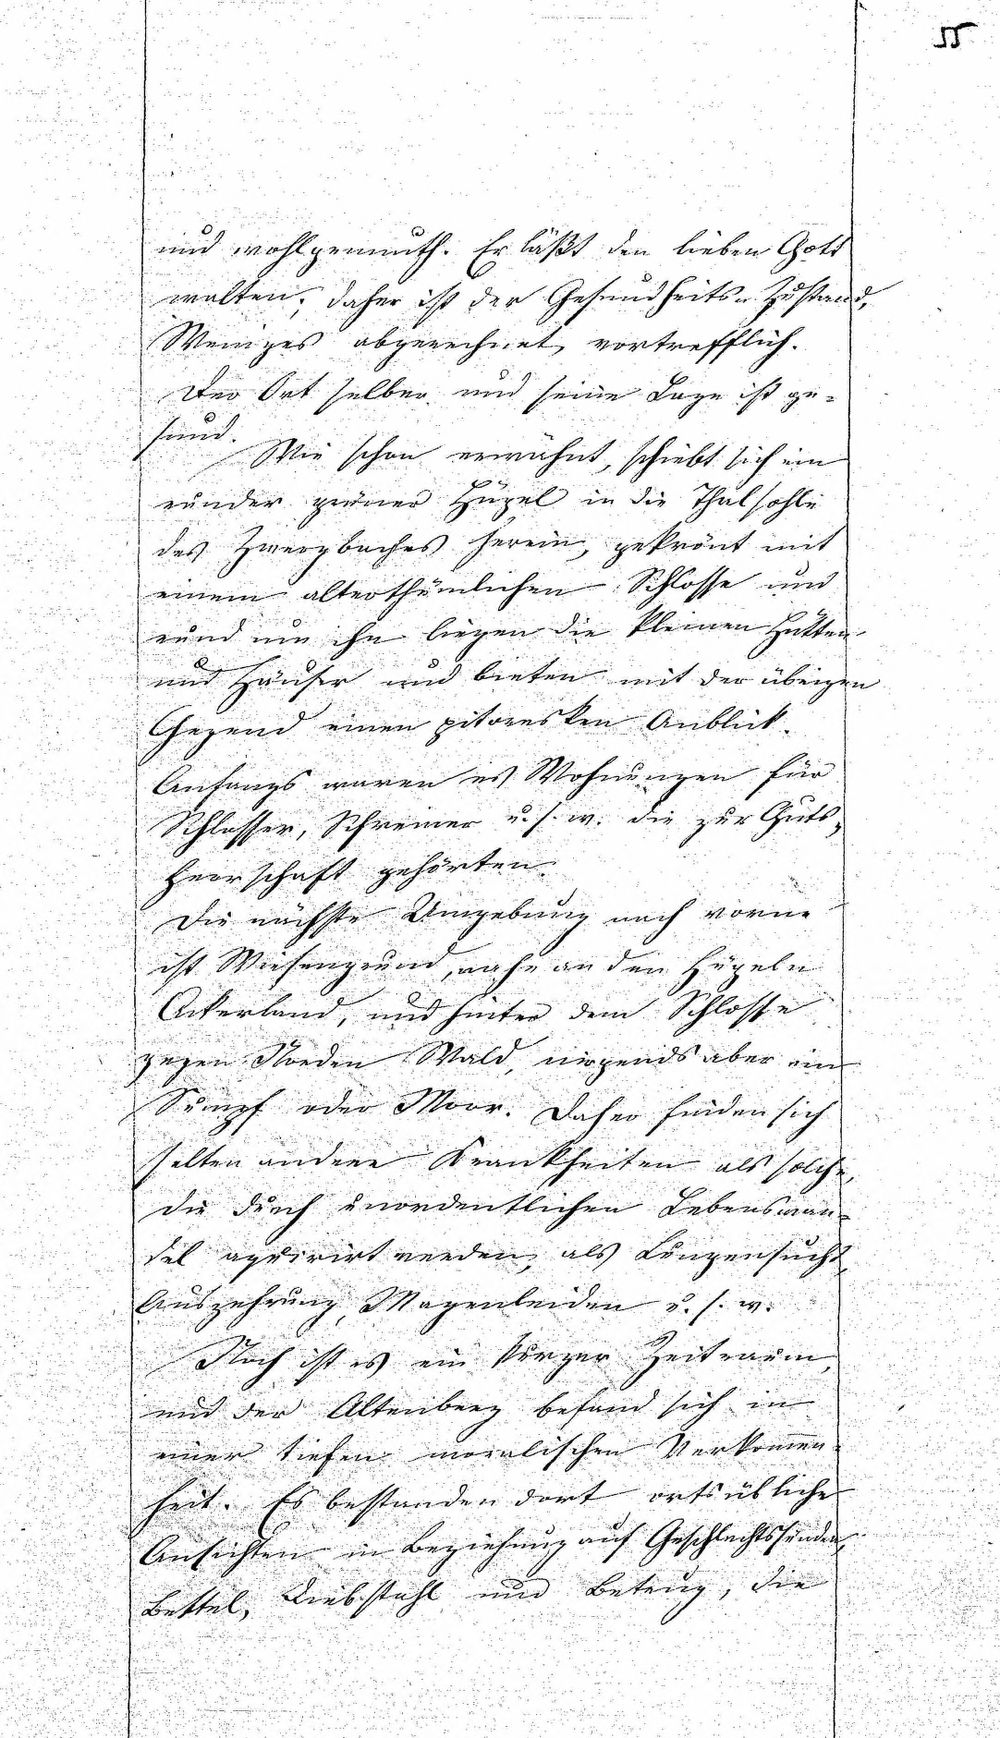 55
und wohlgemuth. Er läßt den lieben Gott
walten; daher ist der Gesundheits-Zustand,
Weniges abgerechnet, vortrefflich.
Der Ort selber und seine Lage ist ge-
sund.
Wie schon erwähnt, schiebt sich ein
runder grüner Hügel in die Thalsohle
des Zwergbaches herein, gekrönt mit
einem alterthümlichen Schlosse und
rund um ihn liegen die kleinen Hütten
und Häuser und bieten mit der übrigen
Gegend einen pitoresken Anblick.
Anfangs waren es Wohnungen für
Schlosser, Schreiner u. s. w. die zur Guts-
herrschaft gehörten.
Die nächste Umgebung nach vorne
ist Wiesengrund, nahe an den Hügeln
Ackerland, und hinter dem Schlosse
gegen Norden Wald, nirgends aber ein
Sumpf oder Moor. Daher finden sich
selten andere Krankheiten als solche,
die durch unordentlichen Lebenswan-
del aquirirt werden, als Lungensucht
Auszehrung, Magenleiden u. s. w.
Noch ist es ein kurzer Zeitraum,
und der Altenberg befand sich in
einer tiefen moralischen Verkommen-
heit. Es bestanden dort ortsübliche
Ansichten in Beziehung auf Geschlechtssünden,
Bettel, Diebstahl und Betrug, die